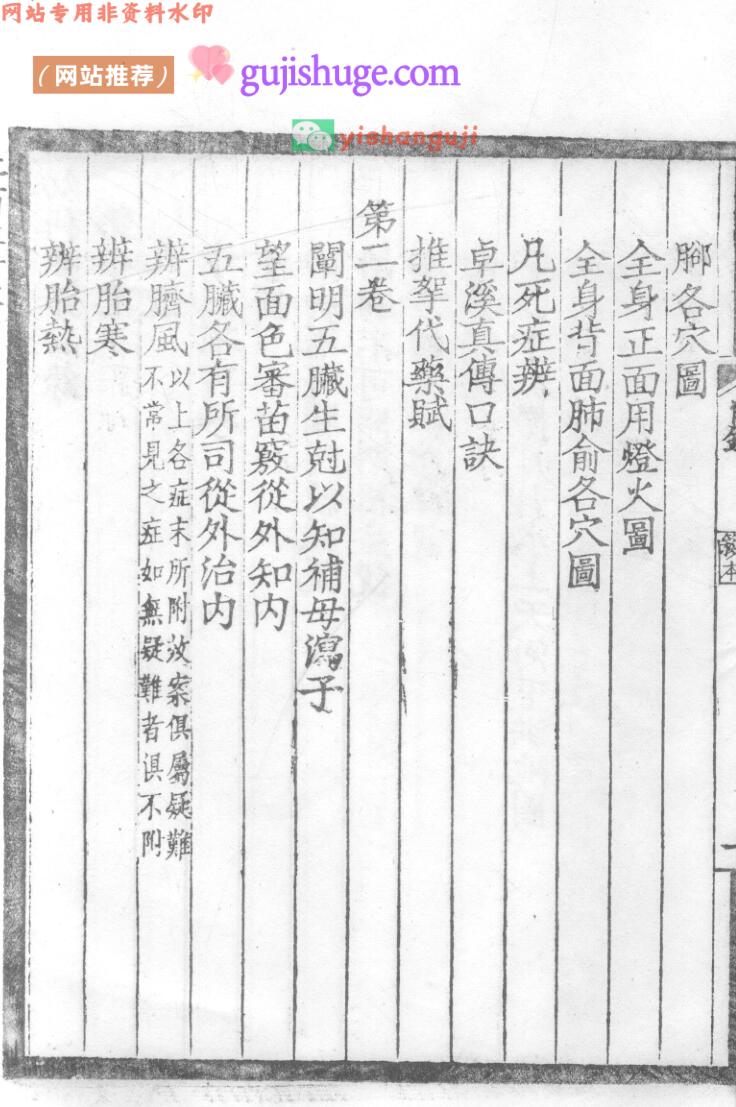 网站专用非资料水印
（网站推荐）
gujishuge.com
yishanguji
腳各穴圖
全身正面用燈火圖
全身背面肺俞各穴圖
凡死症辨
卓溪真傳口訣
推拏代藥賦
第二卷
闡明五臟生尅以知補母瀉子
望面色審苗竅從外知内
五臟各有所司從外治内
辨臍風以上各症末所附汝案俱屬疑難
不常見之症如無疑難者俱不附
辨胎寒
辨胎熱